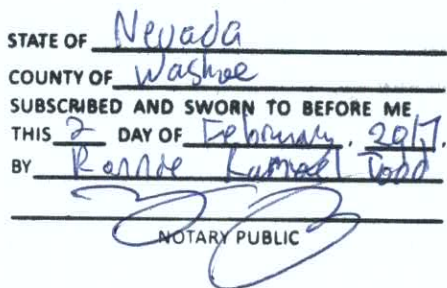 STATE OF Nevada
COUNTY OF Washoe
SUBSCRIBED AND SWORN TO BEFORE ME
THIS 2 DAY OF February, 2017.
BY Ronnie Todd
NOTARY PUBLIC